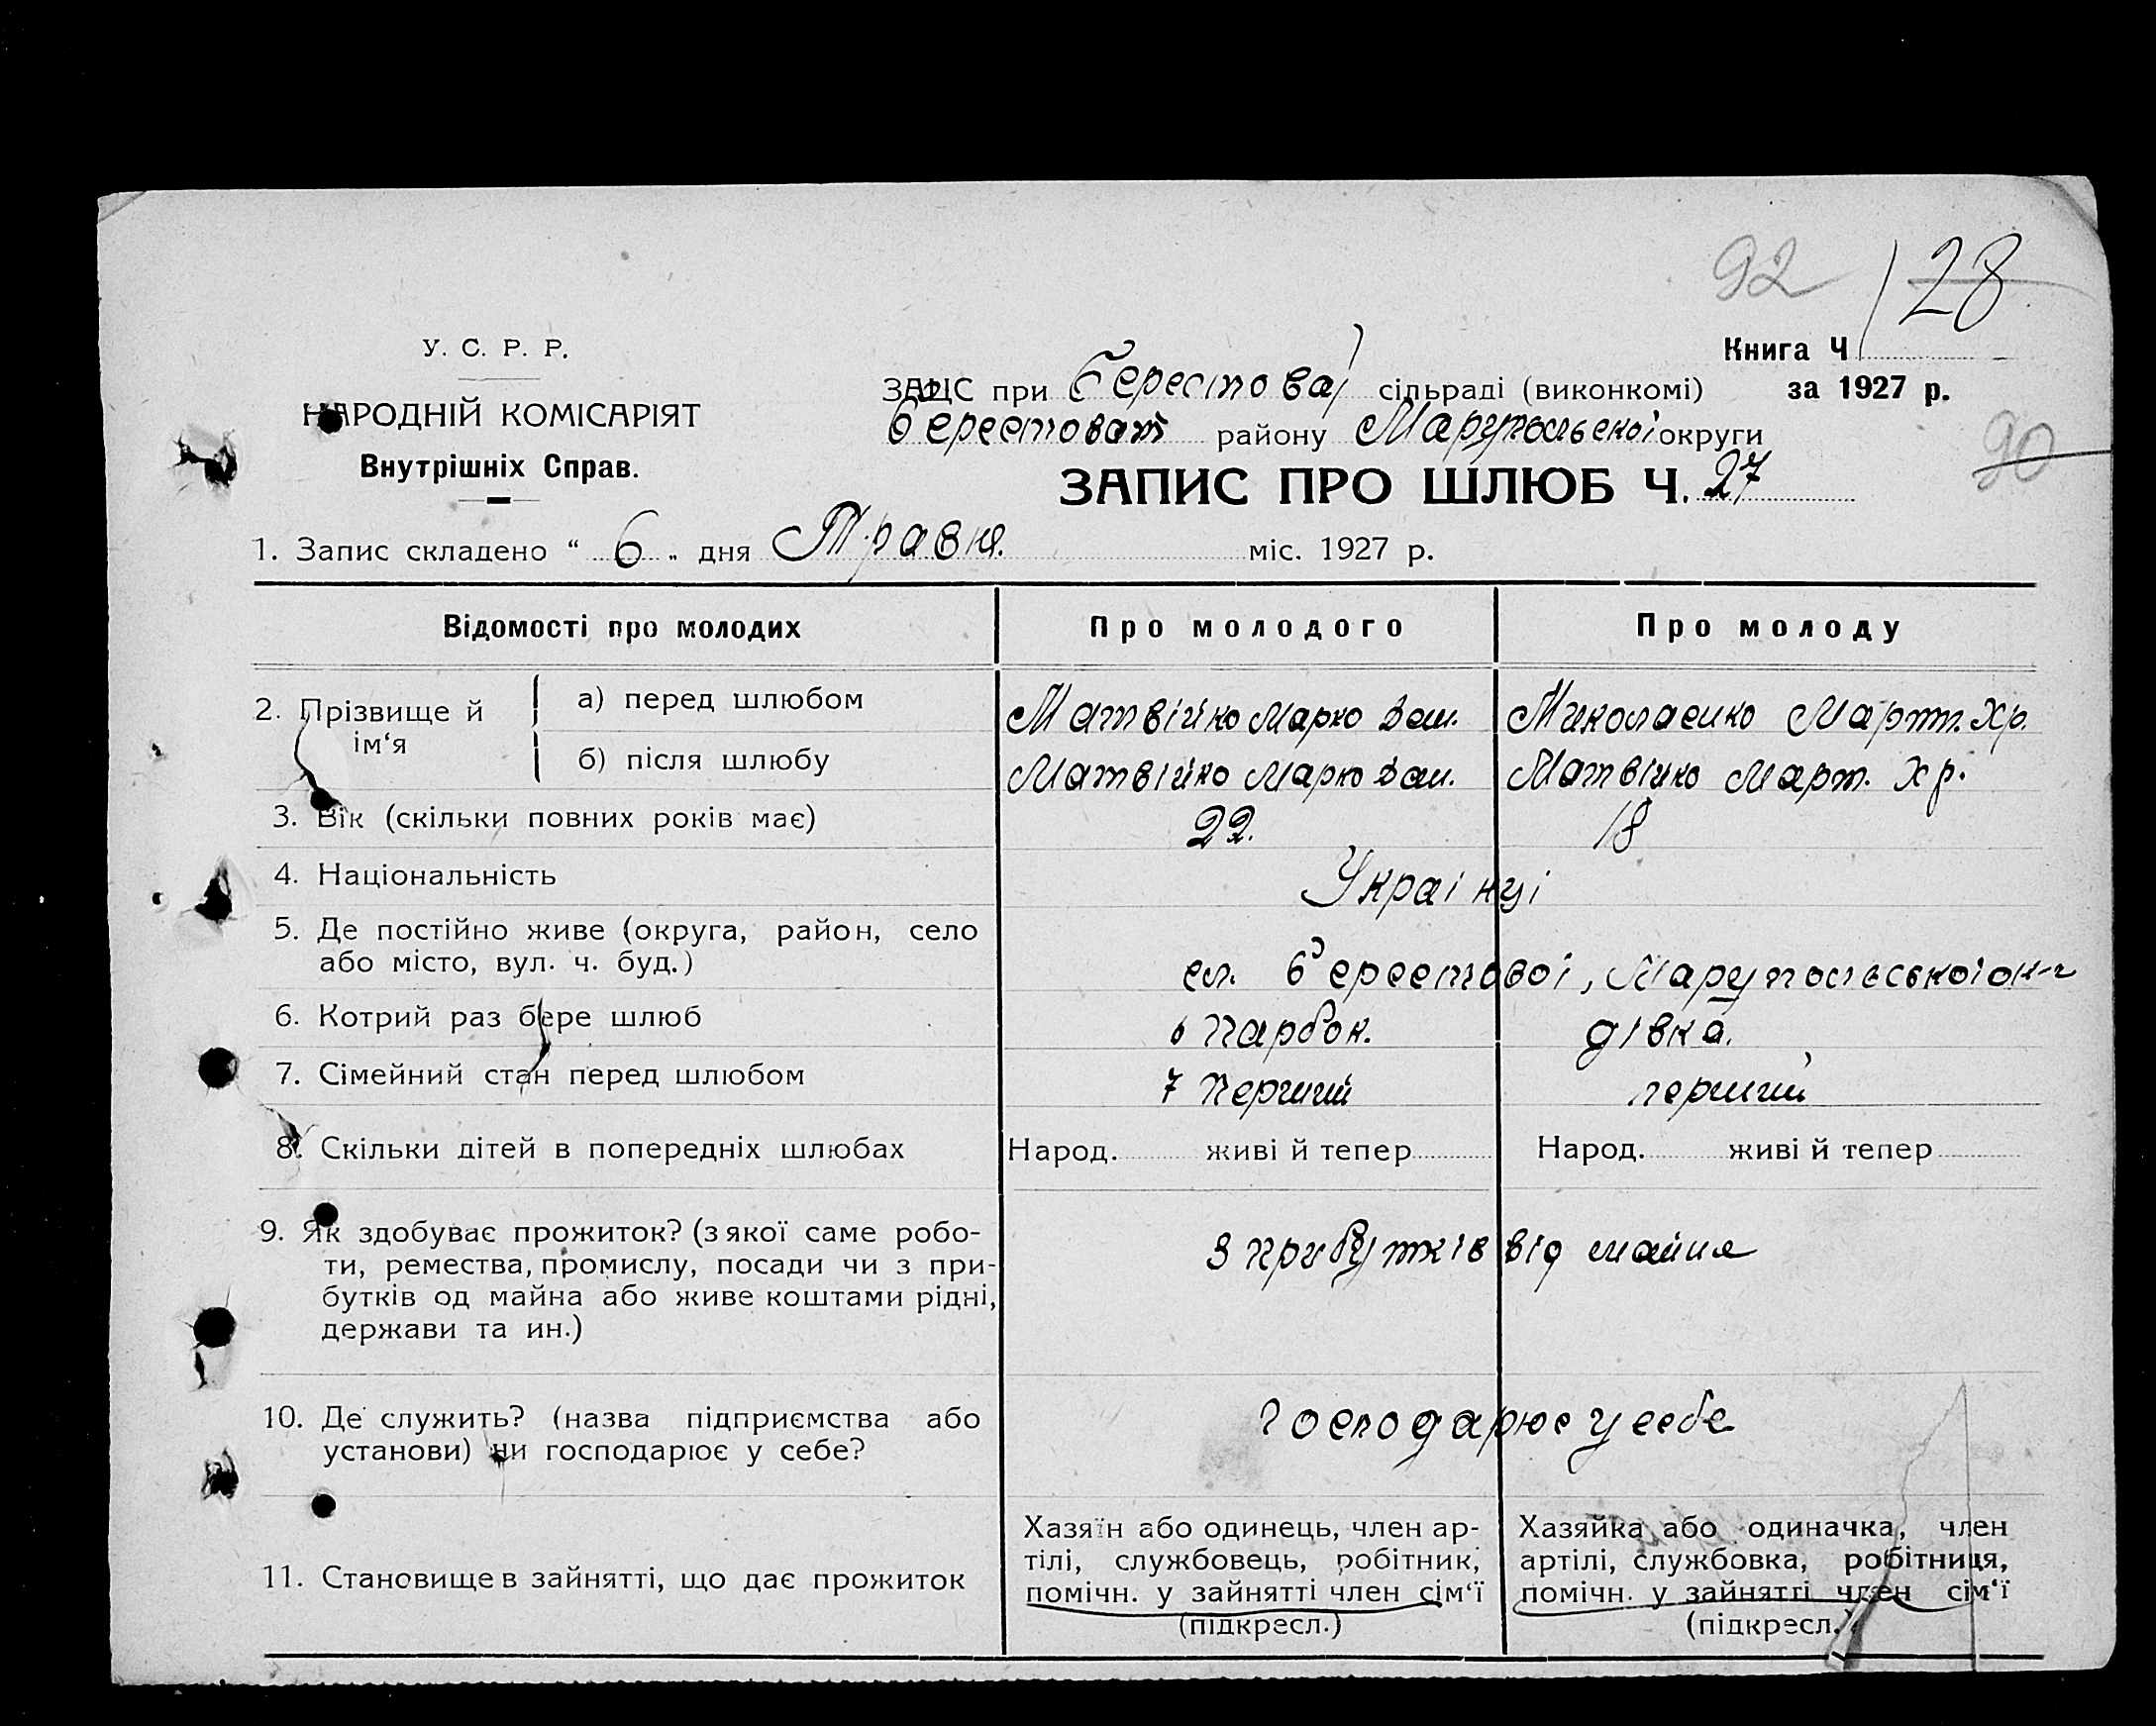 92 28
У. С. Р. Р.
Книга Ч
ЗАЦС при Берестовій сільраді (виконкомі) за 1927 р.
НАРОДНІЙ КОМІСАРІЯТ
Берестоват району Марупольської округи
90
Внутрішніх Справ.
ЗАПИС ПРО ШЛЮБ Ч. 27
1. Запис складено “ 6 „ дня Травня. міс. 1927 р.
Відомості про молодих Про молодого Про молоду
2. Прізвище й ім‘я
а) перед шлюбом Матвійко Марко Миколаенко Март. Хр.
б) після шлюбу Матвійко Марко Матвійко Март. Хр.
3. Вік (скільки повних років має) 22. 18
4. Національність Українці
5. Де постійно живе (округа, район, село
або місто, вул. ч. буд.) сл. Берестової, Марупольської ок-и
6. Котрий раз бере шлюб 6 парбок. дівка.
7. Сімейний стан перед шлюбом 7 перший перший
8. Скільки дітей в попередніх шлюбах Народ. живі й тепер Народ. живі й тепер
9. Як здобуває прожиток? (з якої саме робо-
ти, ремества, промислу, посади чи з при-
бутків од майна або живе коштами рідні,
держави та ин.)
З прибутків від майна
10. Де служить? (назва підприємства або
установи) чи господарює у себе?
Господарює у себе
11. Становище в зайнятті, що дає прожиток
Хазяїн або одинець, член ар-
тілі, службовець, робітник,
помічн. у зайнятті член сім‘ї
(підкресл.)
Хазяйка або одиначка, член
артілі, службовка, робітниця,
помічн. у зайнятті член сім‘ї
(підкресл.)